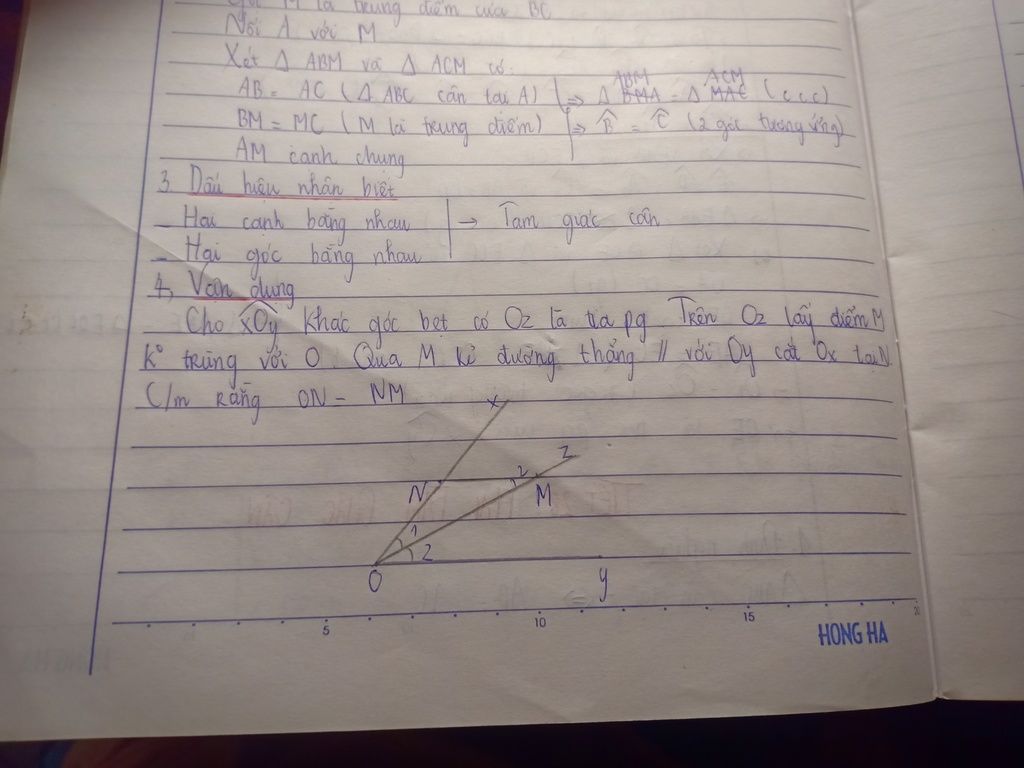 Gọi M là trung điểm của BC
Nối A với M
Xét Δ ABM và Δ ACM có:
ABM ACM
AB = AC (Δ ABC cân tại A) ⇒ Δ BMA = Δ MAC (c.c.c)
BM = MC (M là trung điểm) ⇒ B̂ = Ĉ (2 góc tương ứng)
AM cạnh chung
3. Dấu hiệu nhận biết
- Hai cạnh bằng nhau → Tam giác cân
- Hai góc bằng nhau
4, Vận dụng
Cho xOy khác góc bẹt có Oz là tia pg Trên Oz lấy điểm M
k° trùng với O. Qua M kẻ đường thẳng // với Oy cắt Ox tại N
C/m rằng ON = NM
x
z
2
N M
1
2
O y
5 10 15 20
HONG HA